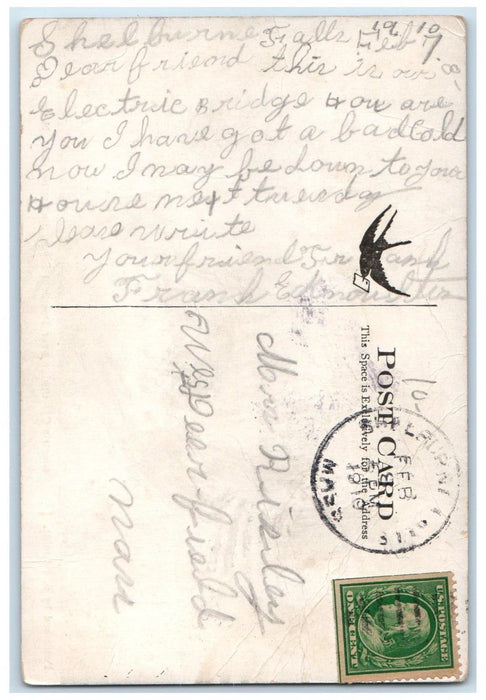 Shelburne Falls Feb 7
1910
Dear friend this is our
Electric Bridge How are
you I have got a bad Cold
now I may be down to your
House next tuesday
please write
your friend Frank
Frank
POST CARD
This Space is Exclusively for the Address
Mrs Risley
West Deerfield
Mass
SHELBURNE FALLS
FEB
1910
MASS
U.S. POSTAGE
ONE CENT